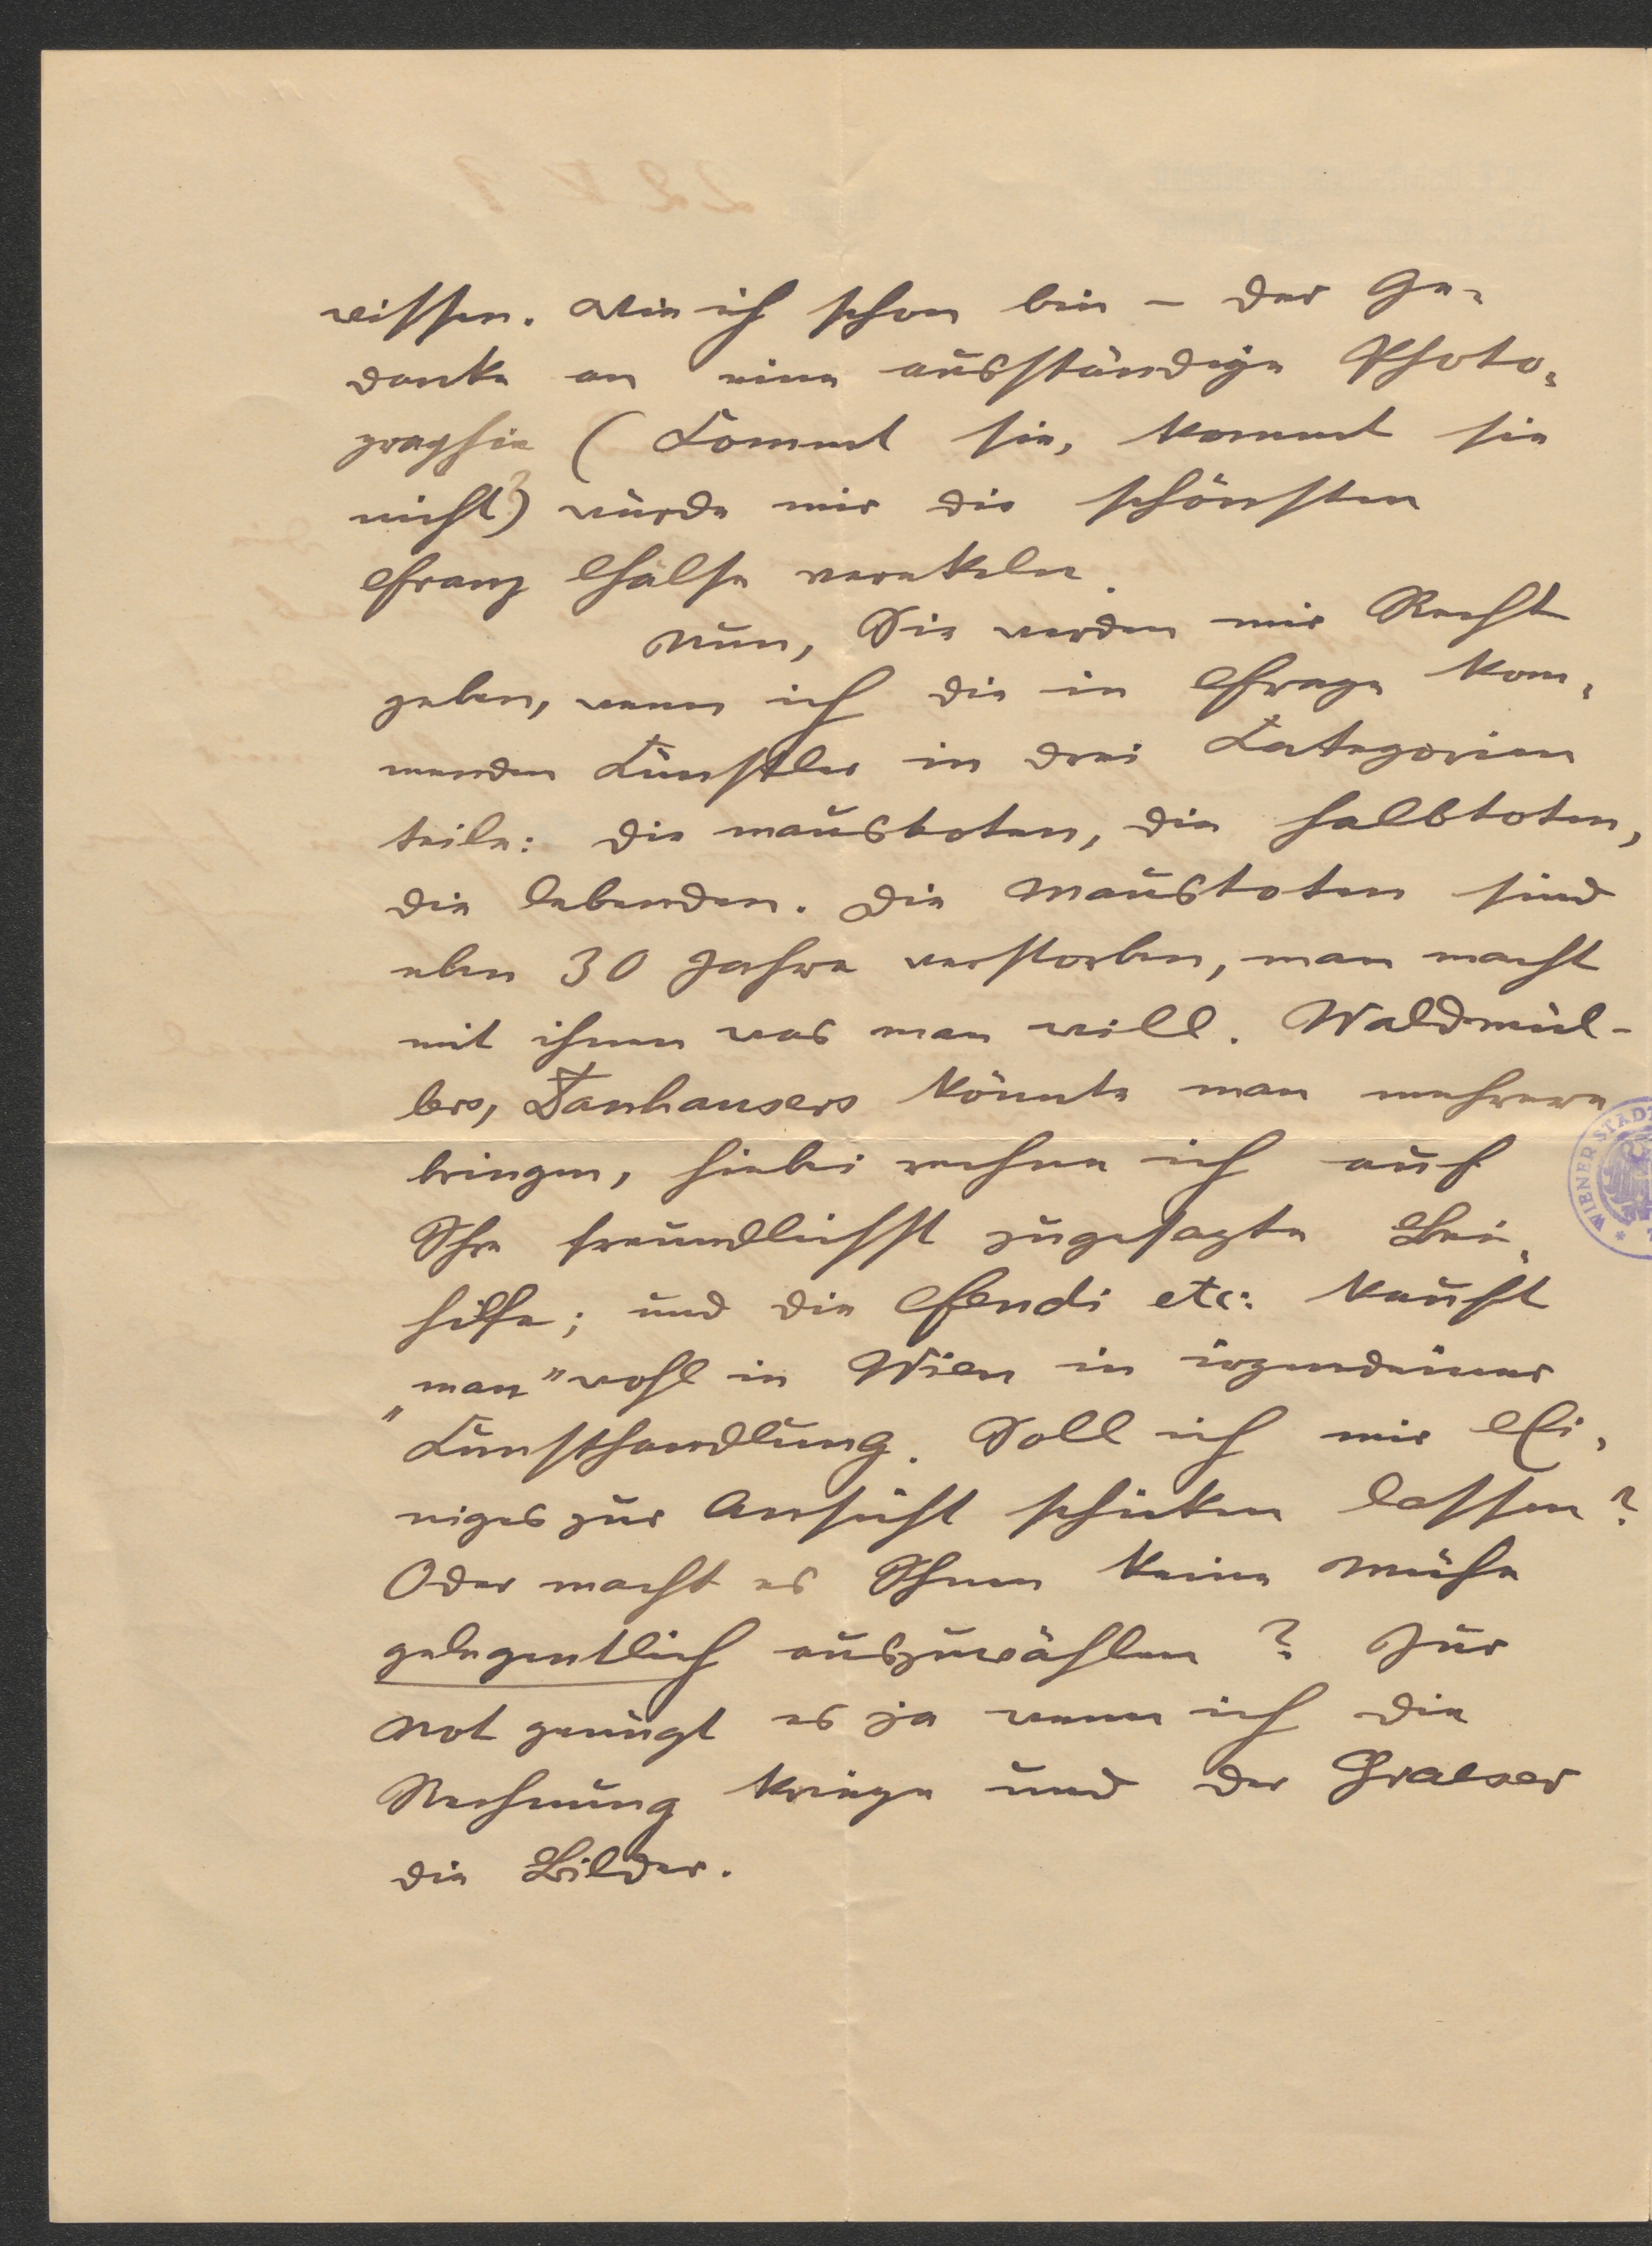 wissen. Wie ich schon bin – der Ge-
danke an eine ausständige Photo-
graphie (Kommt sie, kommt sie
nicht?) würde mir die schönsten
Franz Hälse verekeln.
Nun, Sie werden mir Recht
geben, wenn ich die in Frage kom-
menden Künstler in drei Kategorien
teile: die maustoten, die halbtoten,
die lebenden. Die Maustoten sind
eben 30 Jahre verstorben, man macht
mit ihnen was man will. Waldmül-
lers, Danhausers könnte man mehrere
bringen, hiebei rechne ich auf
Ihre freundlichst zugesagte Bei-
hilfe; und die Fendi etc: kauft
„man“ wohl in Wien in irgendeiner
Kunsthandlung. Soll ich mir Ei-
niges zur Ansicht schicken lassen?
Oder macht es Ihnen keine Mühe
gelegentlich auszuwählen? Zur
Not genügt es ja wenn ich die
Rechnung kriege und der Graeser
die Bilder.
WIENER STADT